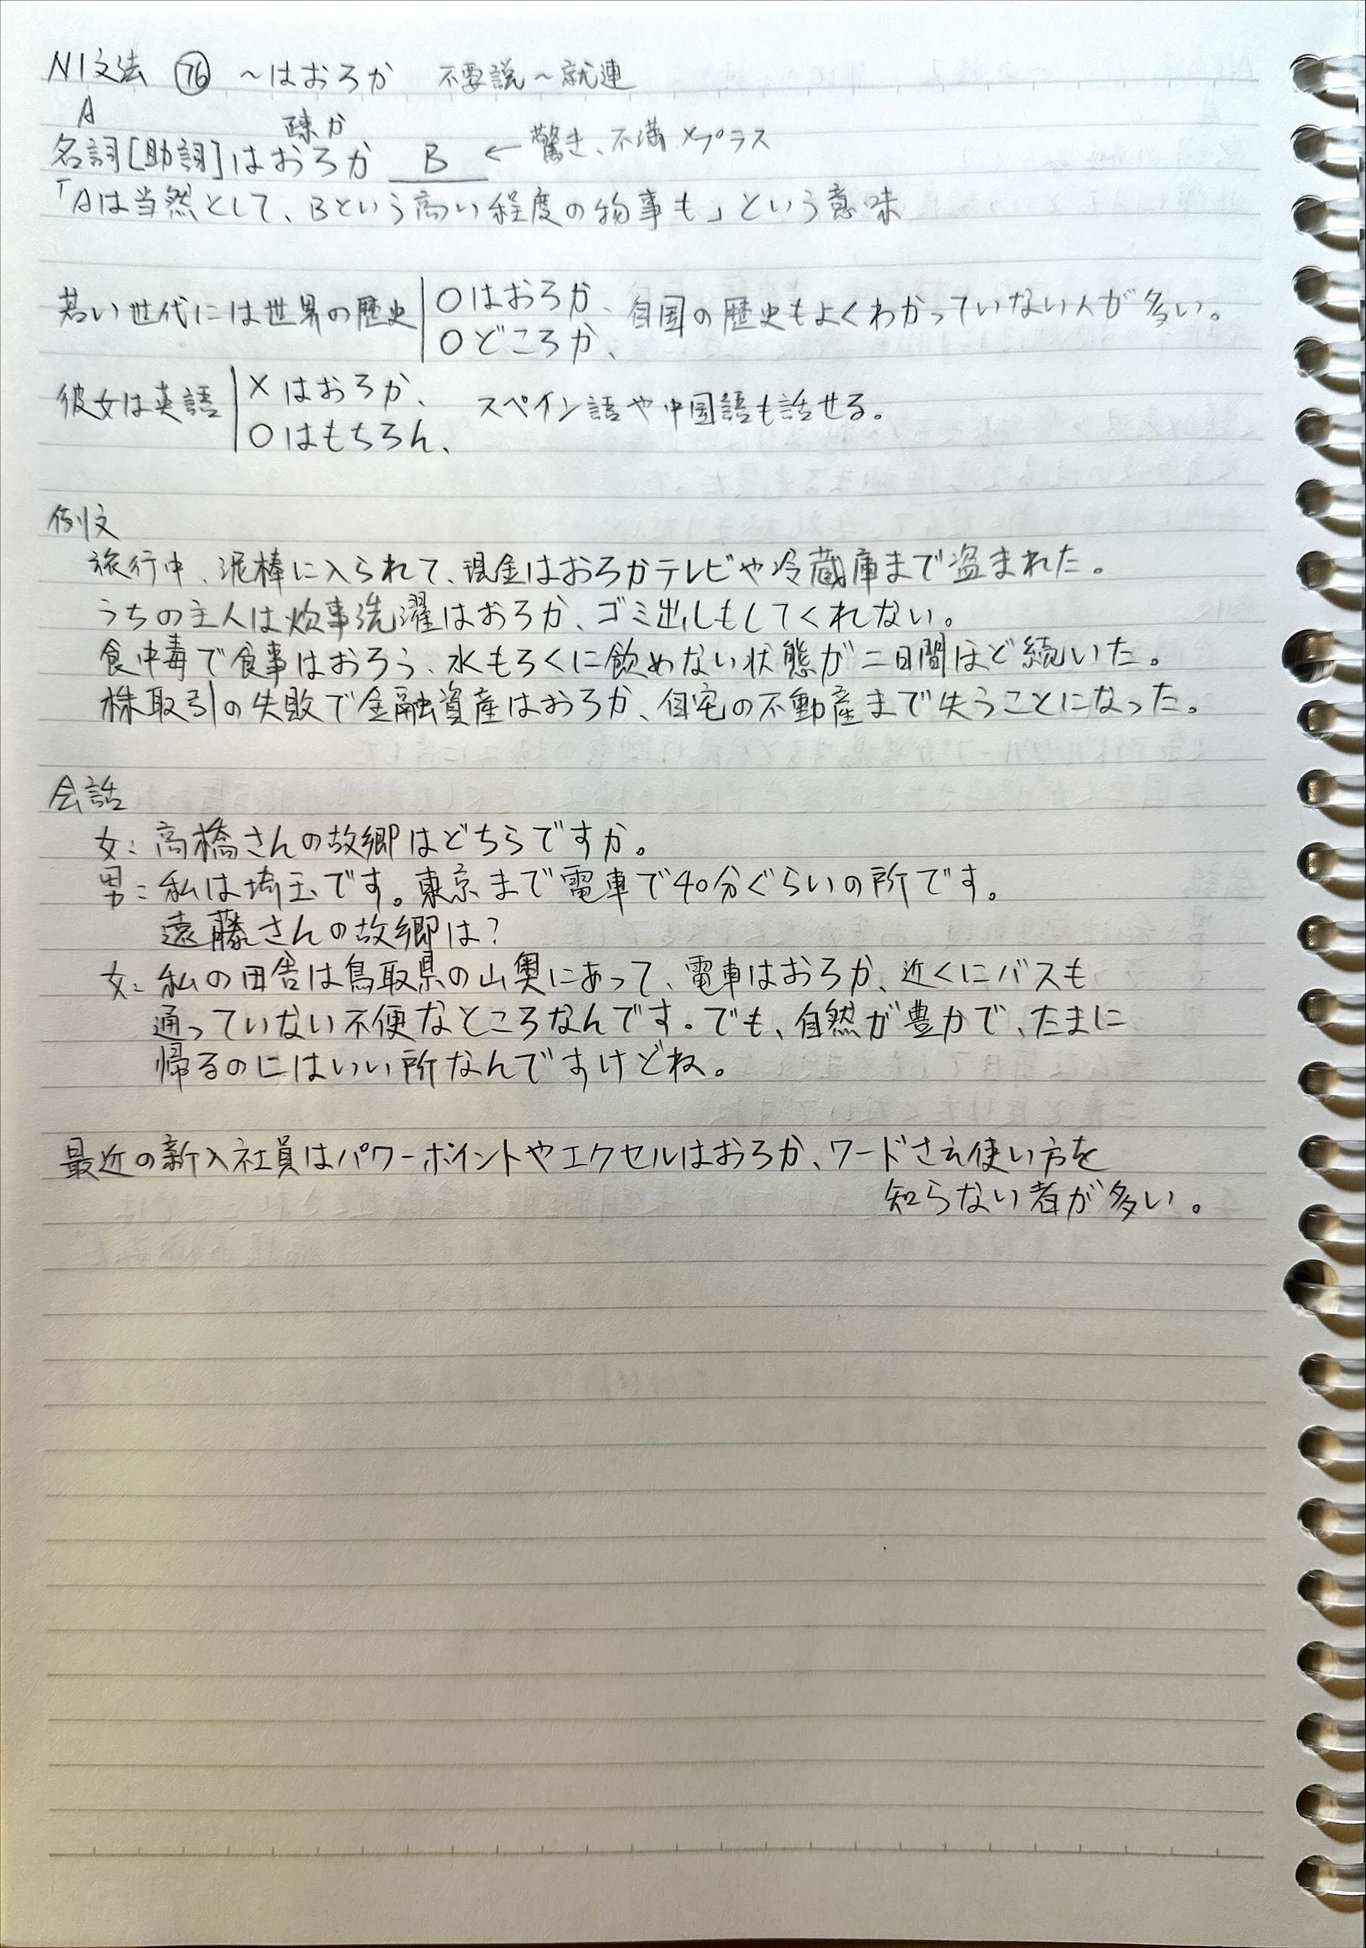 N1文法 ㊆ ~はおろか 不要説~就連
A
疎か
名詞[助詞]はおろか B ← 驚き、不満 ×プラス
「Aは当然として、Bという高い程度の物事も」という意味
若い世代には世界の歴史 ○はおろか、 自国の歴史もよくわかっていない人が多い。
○どころか、
彼女は英語 ×はおろか、 スペイン語や中国語も話せる。
○はもちろん、
例文
旅行中、泥棒に入られて、現金はおろかテレビや冷蔵庫まで盗まれた。
うちの主人は炊事洗濯はおろか、ゴミ出しもしてくれない。
食中毒で食事はおろう、水もろくに飲めない状態が二日間ほど続いた。
株取引の失敗で金融資産はおろか、自宅の不動産まで失うことになった。
会話
女:高橋さんの故郷はどちらですか。
男:私は埼玉です。東京まで電車で40分ぐらいの所です。
遠藤さんの故郷は?
女:私の田舎は鳥取県の山奥にあって、電車はおろか、近くにバスも
通っていない不便なところなんです。でも、自然が豊かで、たまに
帰るのにはいい所なんですけどね。
最近の新入社員はパワーポイントやエクセルはおろか、ワードさえ使い方を
知らない者が多い。